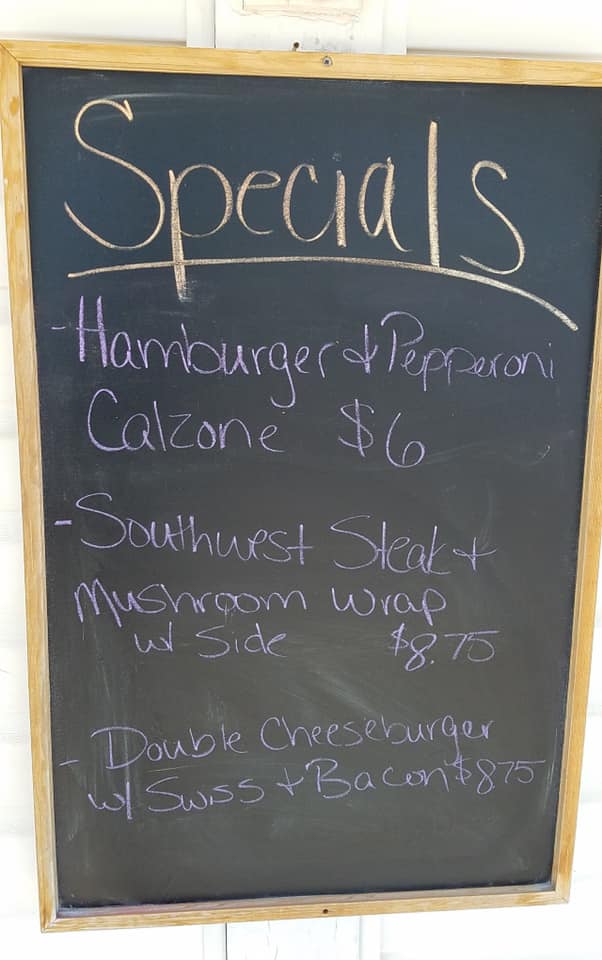 Specials
- Hamburger & Pepperoni
Calzone $6
- Southwest Steak +
Mushroom wrap
w/ Side $8.75
- Double Cheeseburger
w/ Swiss + Bacon $8.75